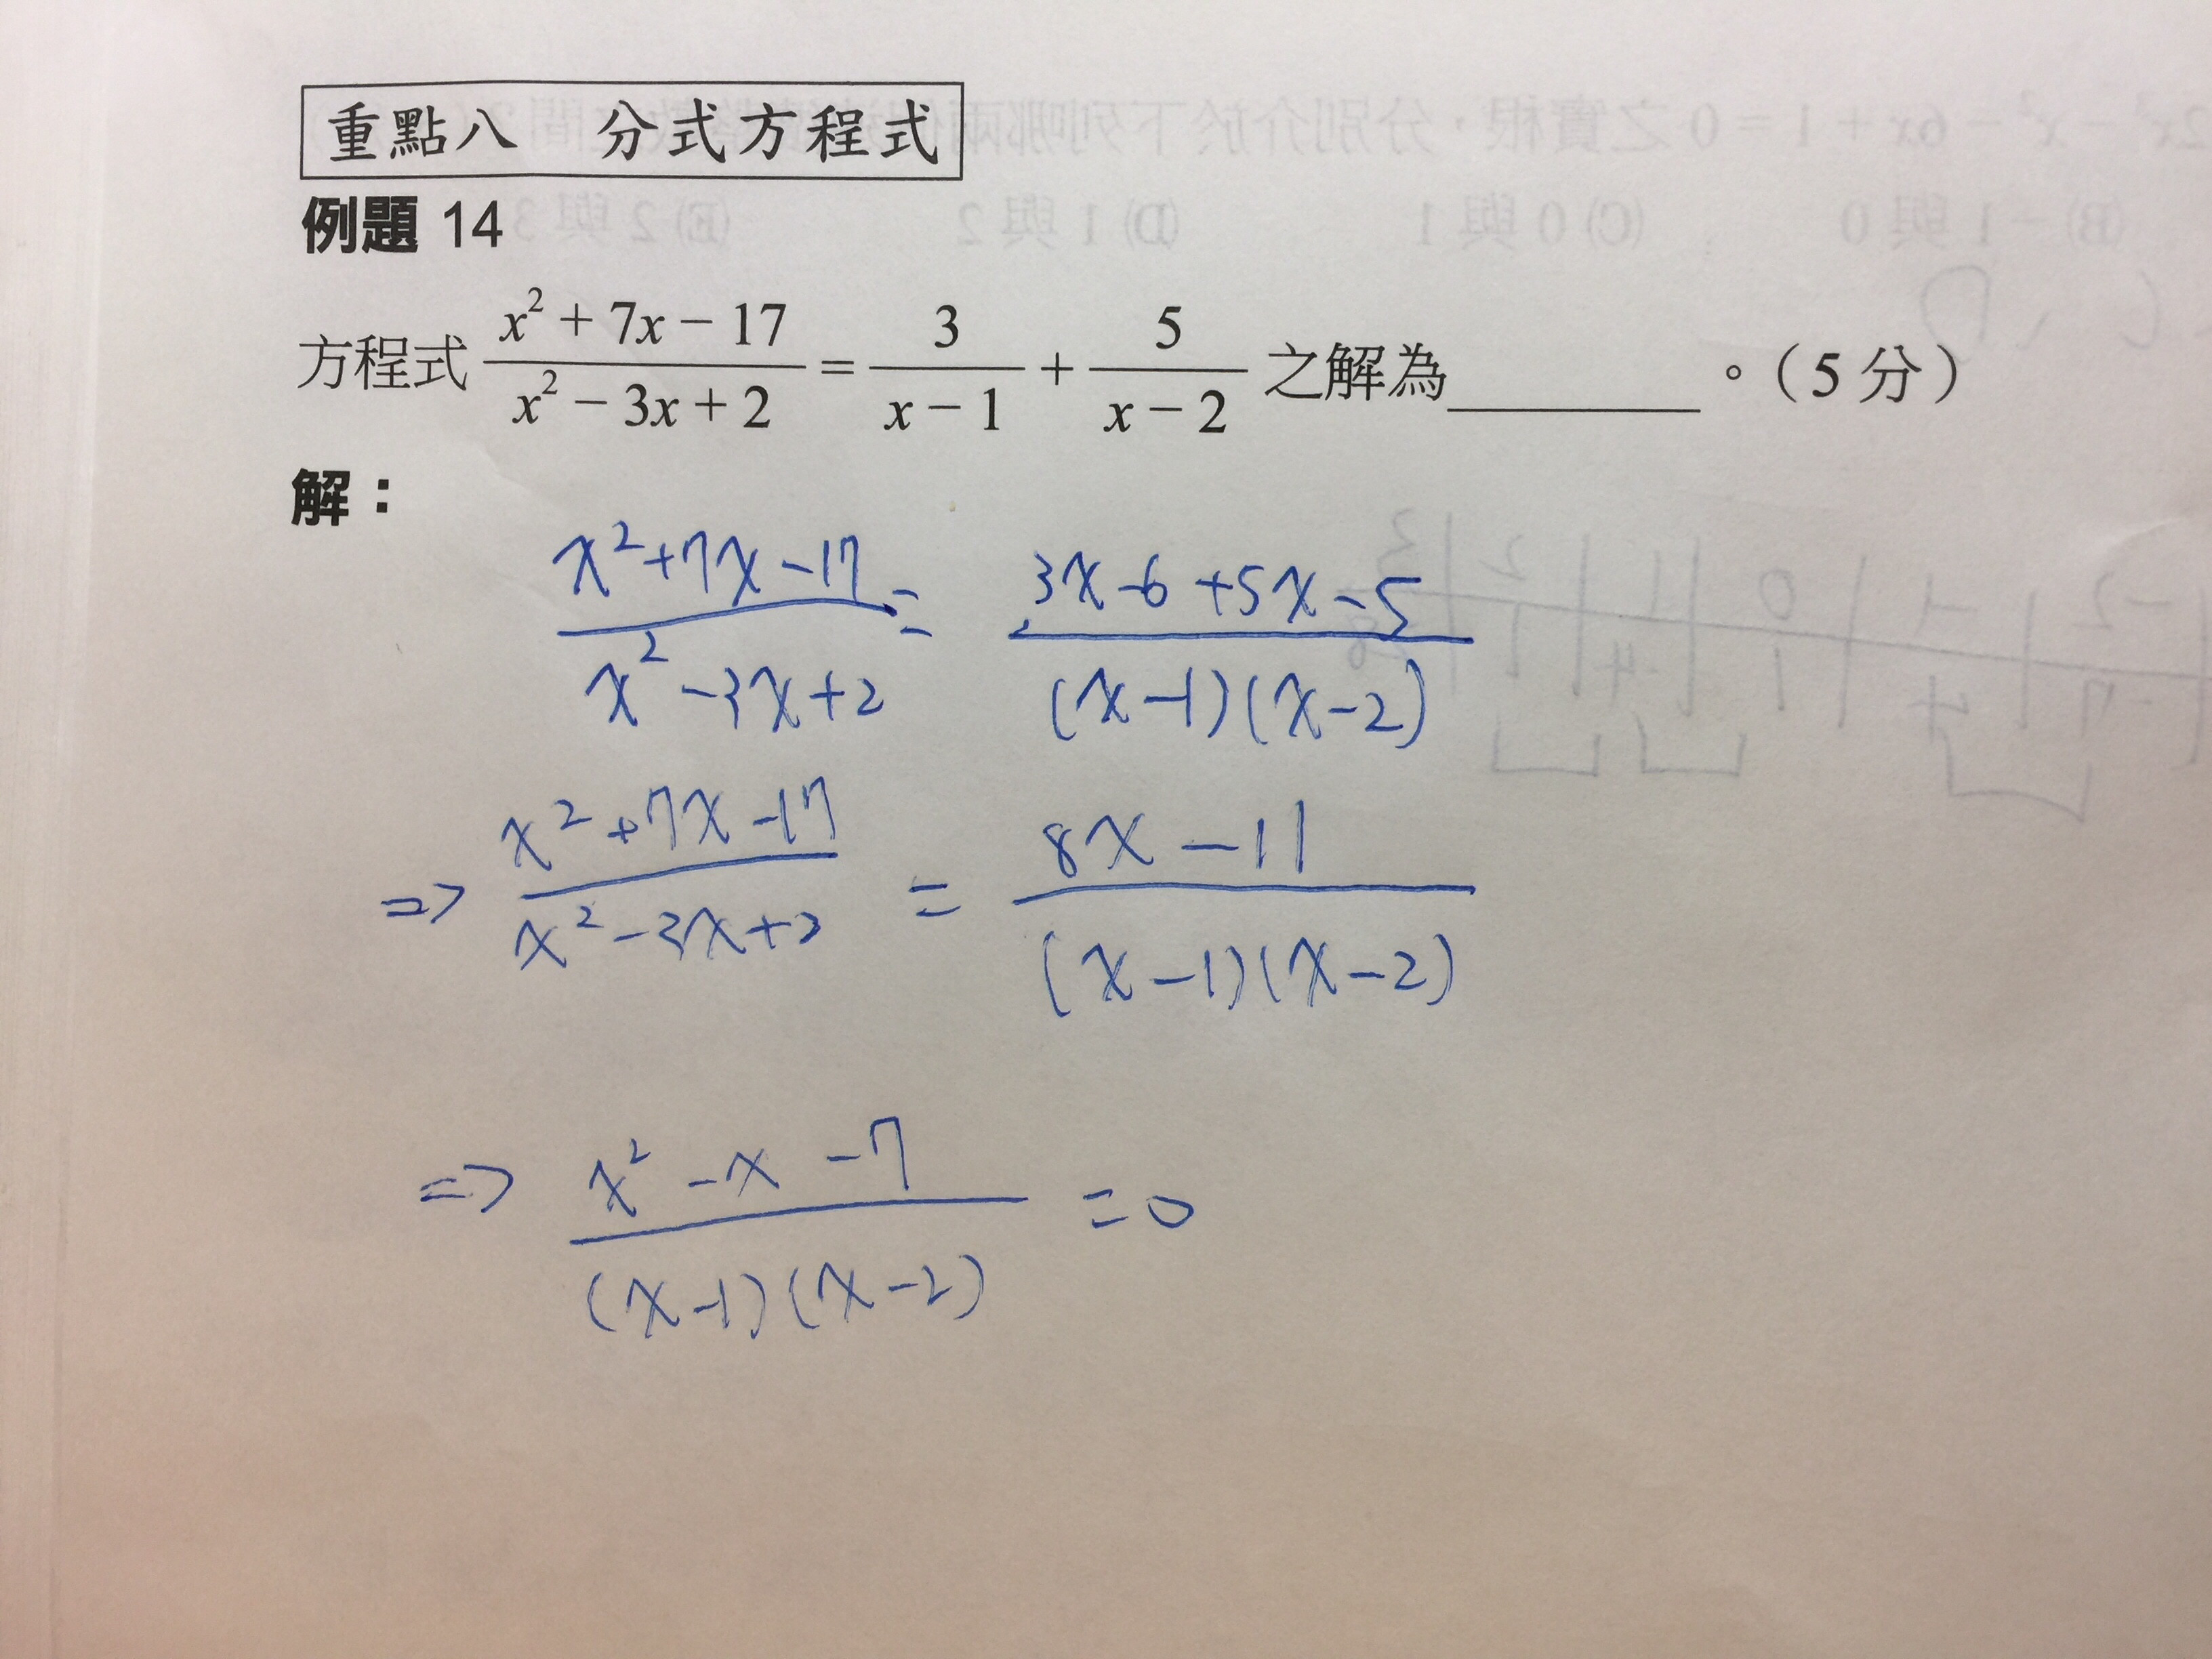 重點八 分式方程式
例題 14
方程式 \frac{x^2+7x-17}{x^2-3x+2} = \frac{3}{x-1} + \frac{5}{x-2} 之解為________。（5 分）
解：
\frac{x^2+7x-17}{x^2-3x+2} = \frac{3x-6+5x-5}{(x-1)(x-2)}
=> \frac{x^2+7x-17}{x^2-3x+2} = \frac{8x-11}{(x-1)(x-2)}
=> \frac{x^2-x-7}{(x-1)(x-2)} = 0